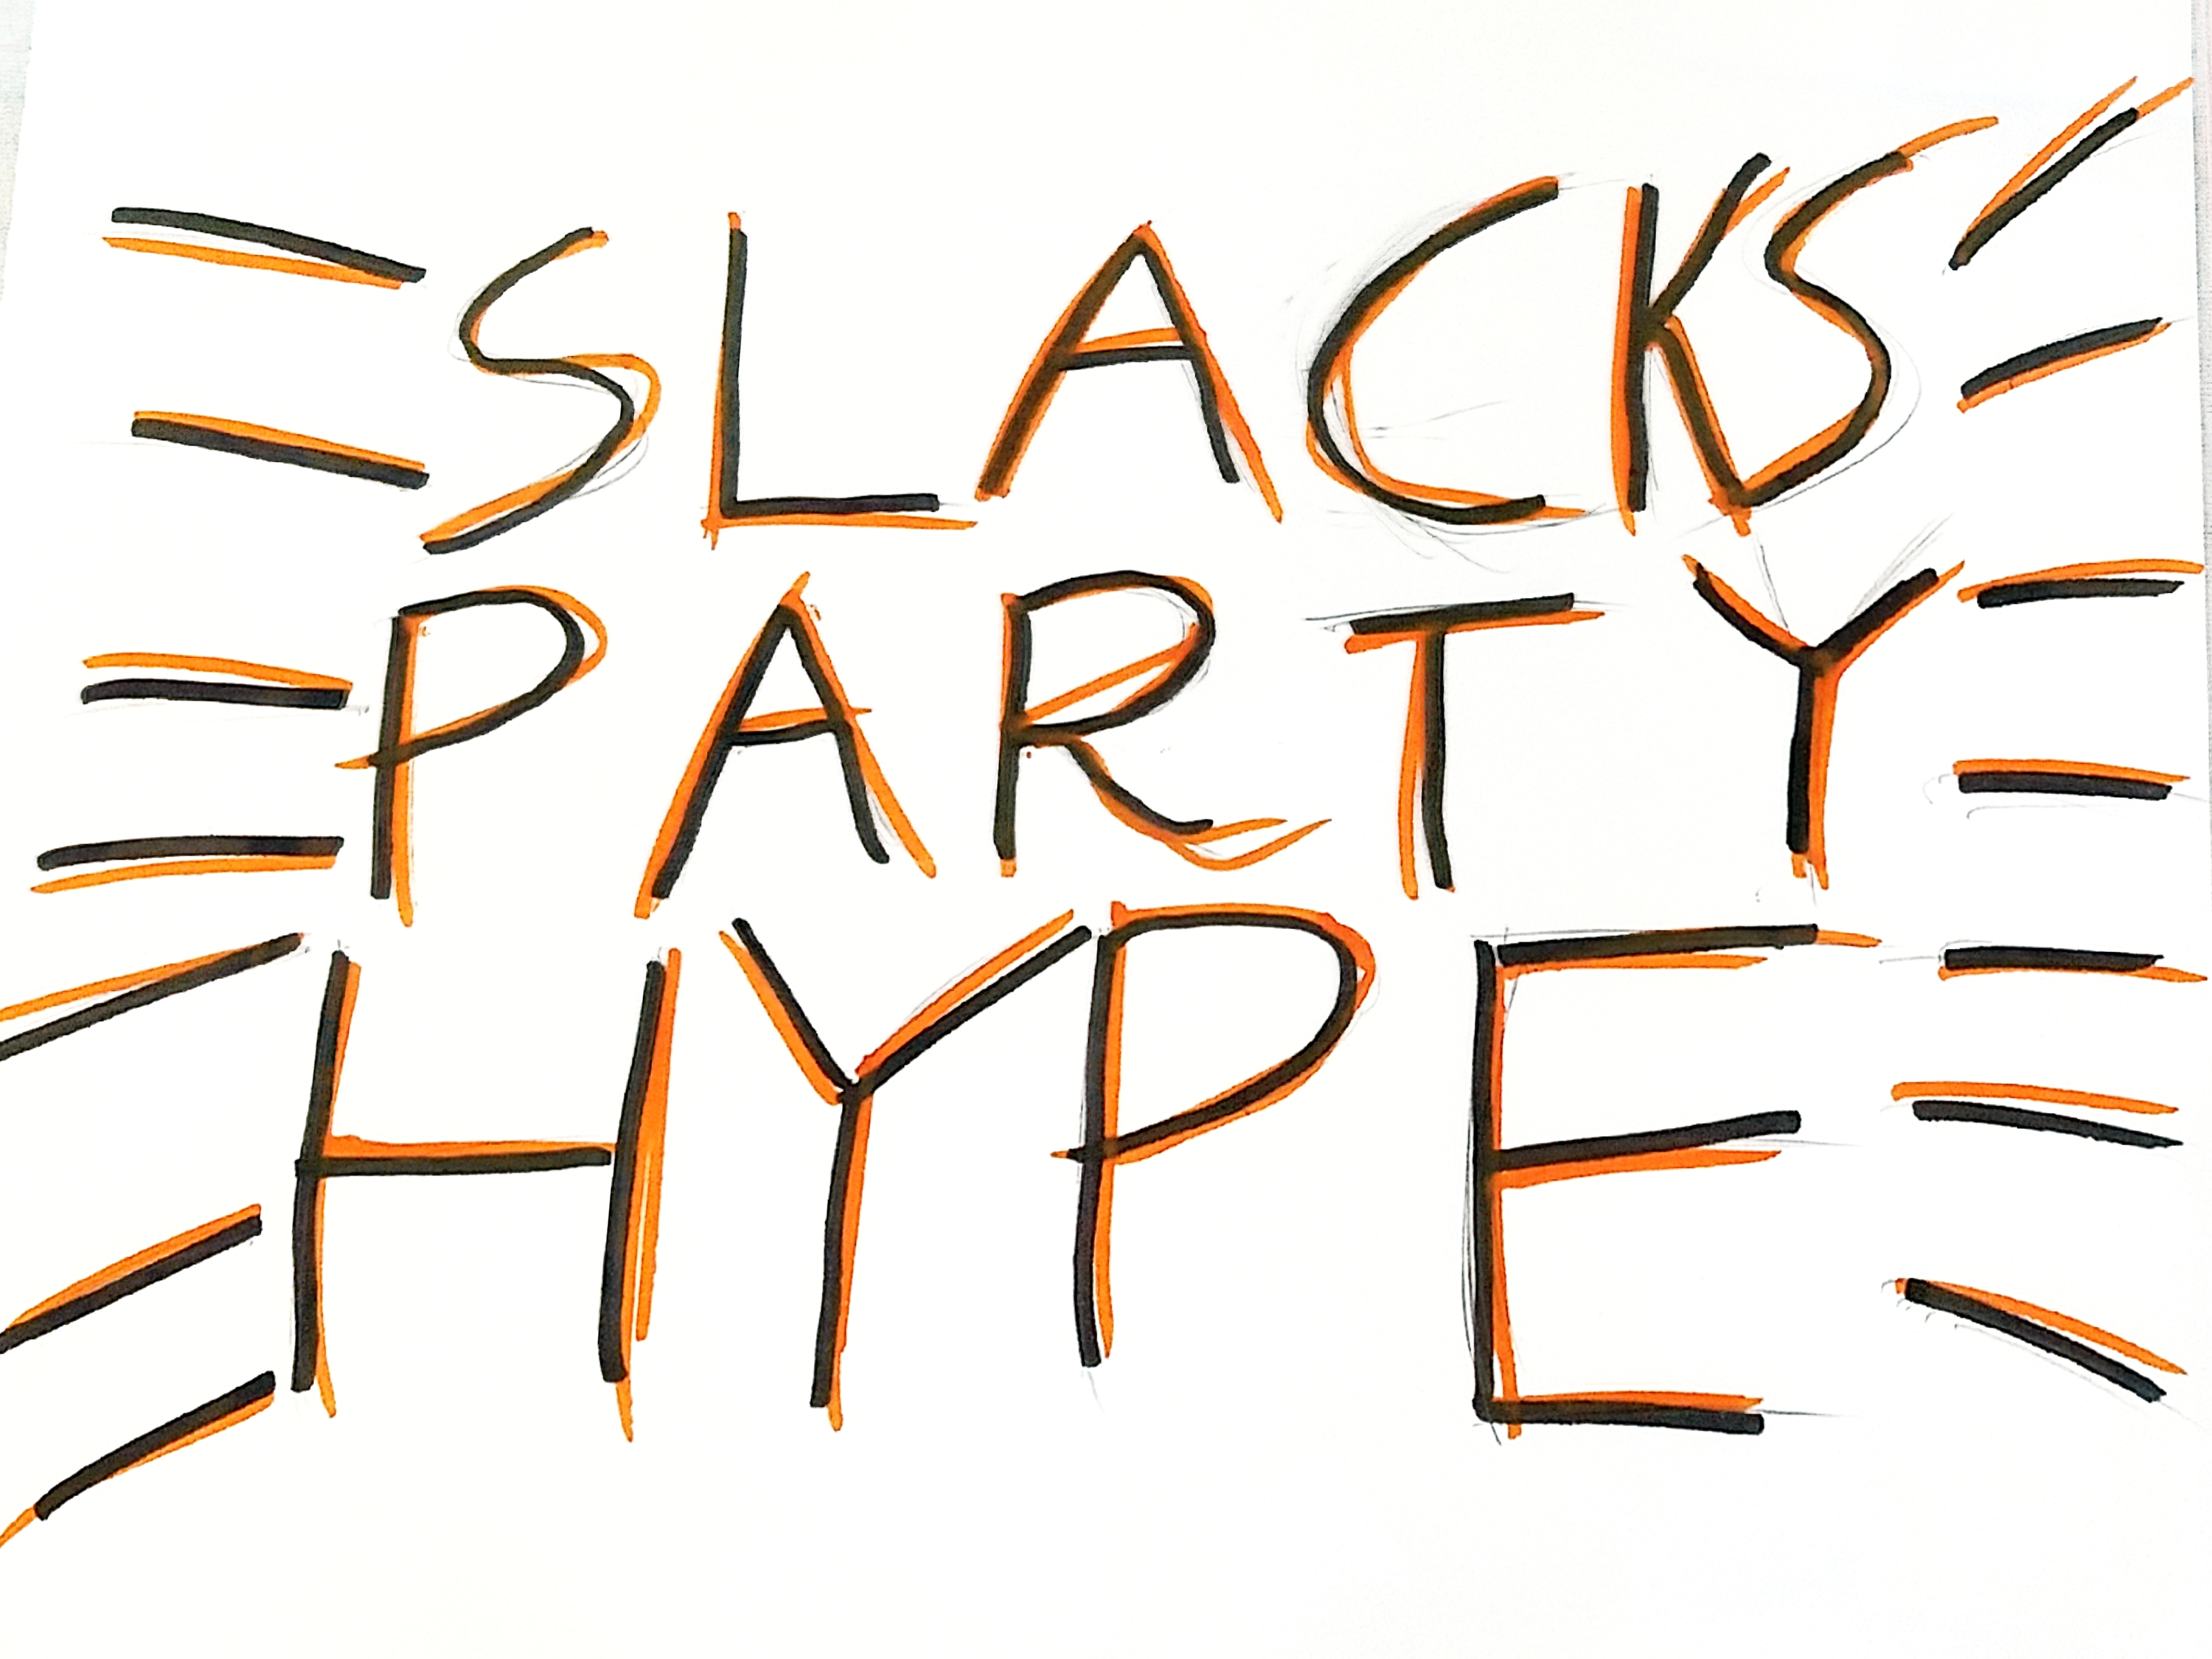 SLACKS
PARTY
HYPE